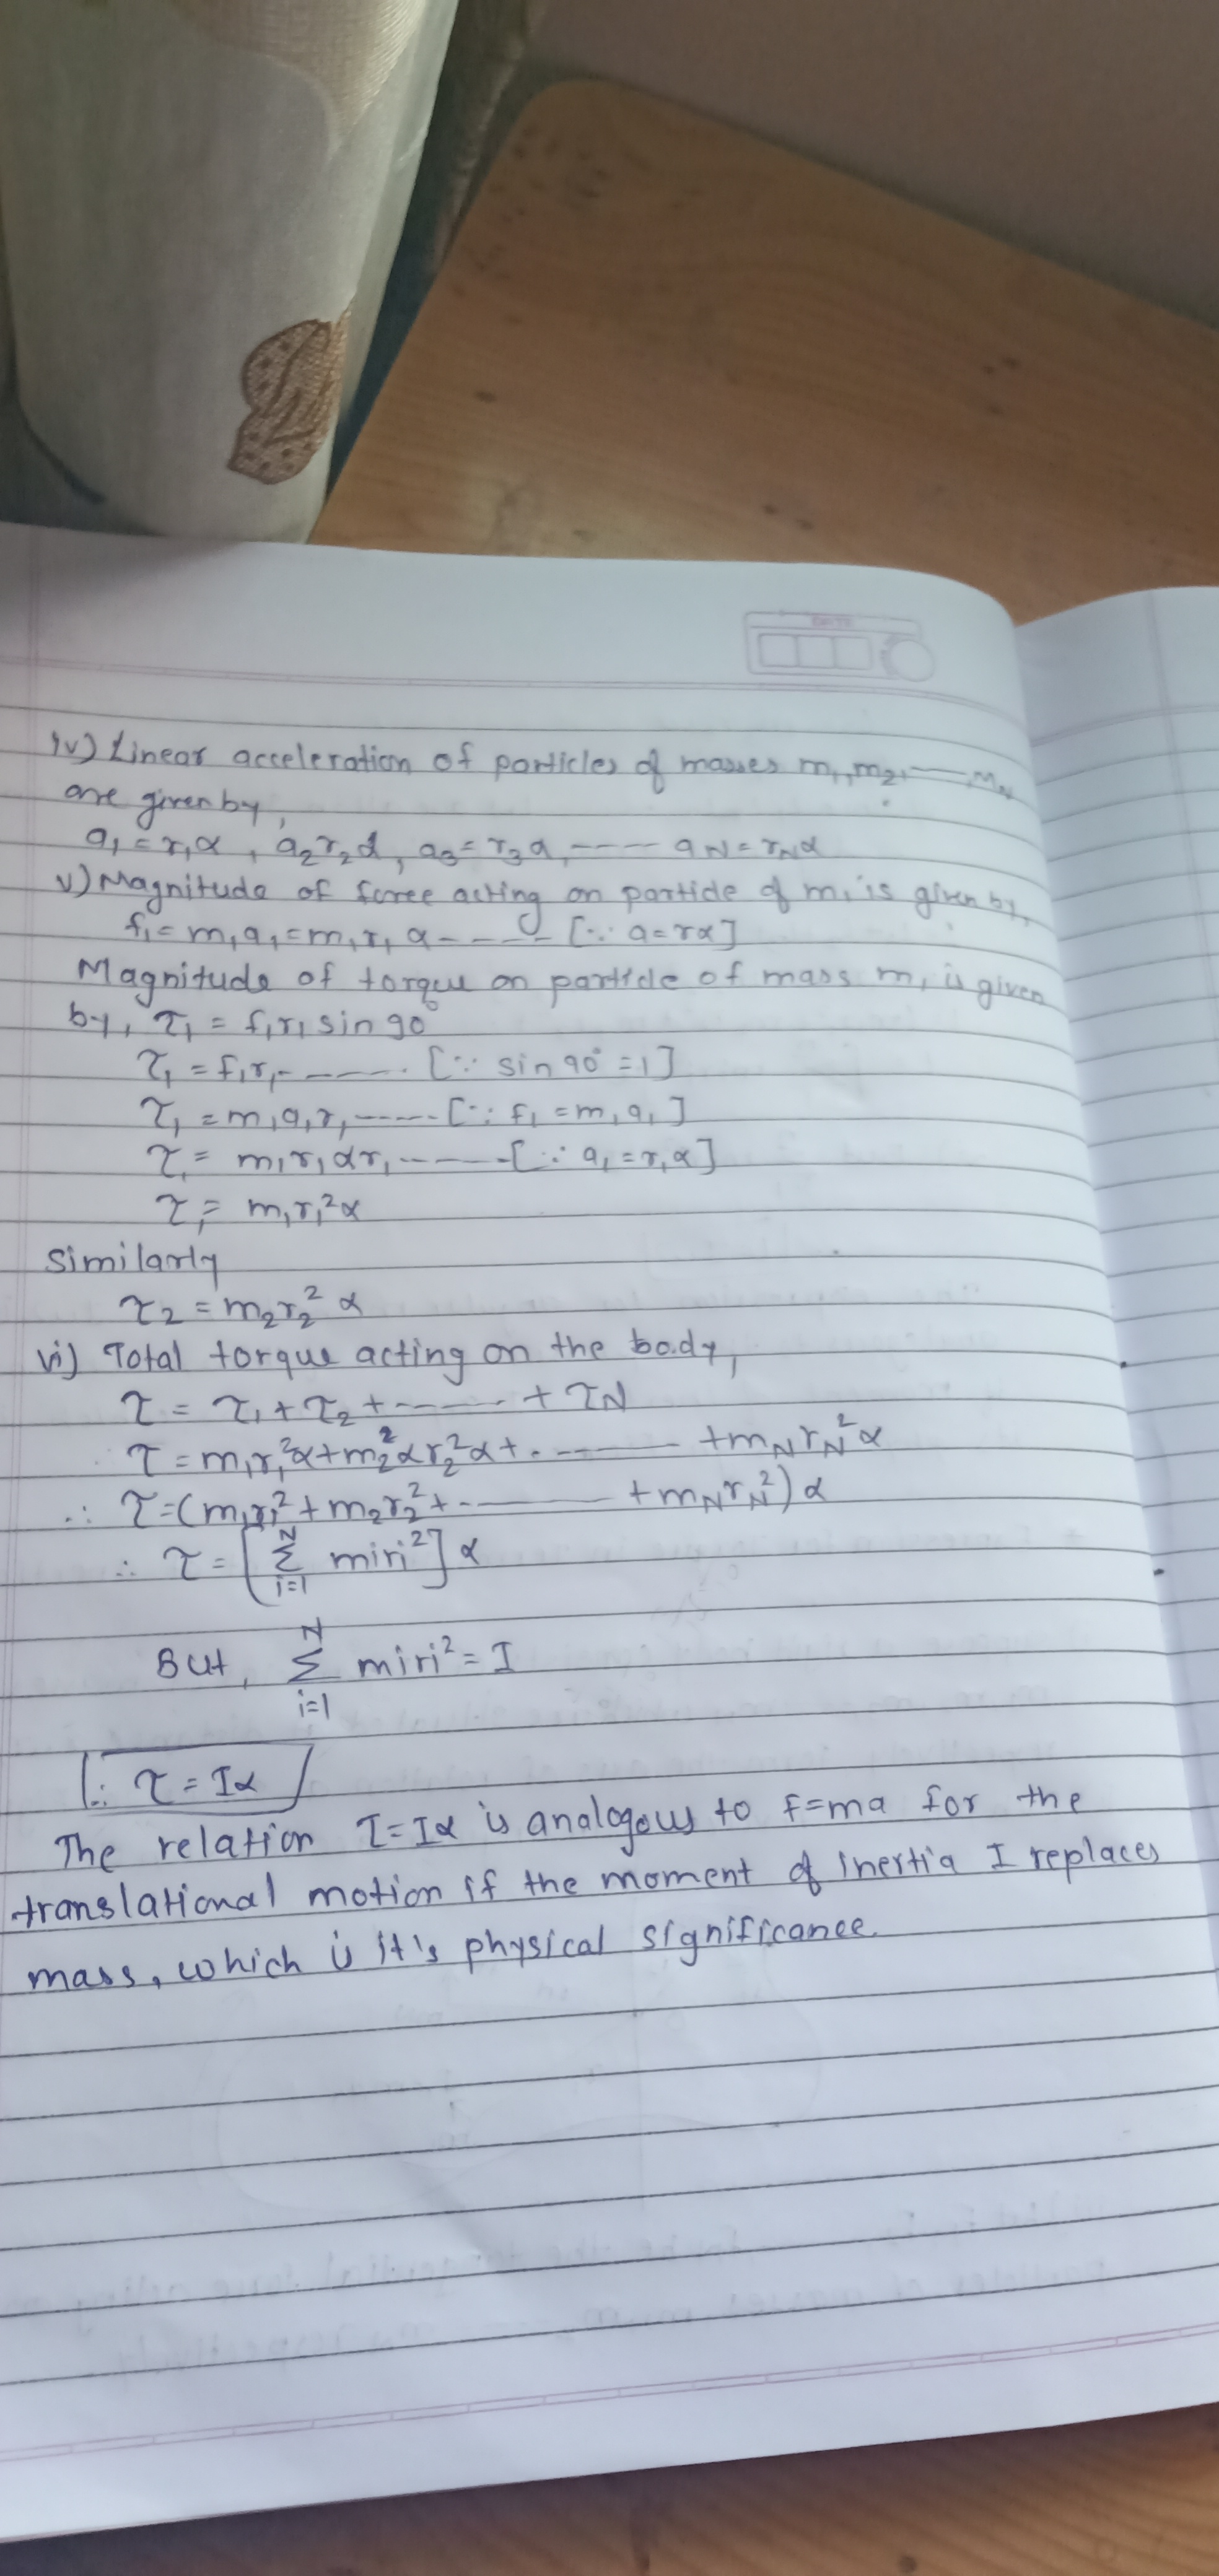 iv) Linear acceleration of particles of masses m₁, m₂, ——, mN
are given by,
a₁ = r₁α, a₂r₂α, a₃ = r₃α, ---- aN = rNα
v) Magnitude of force acting on particle of m₁ is given by,
f₁ = m₁a₁ = m₁r₁α ----- [∵ a = rα]
Magnitude of torque on particle of mass m₁ is given
by, τ₁ = f₁r₁ sin 90°
τ₁ = f₁r₁ ------ [∵ sin 90° = 1]
τ₁ = m₁a₁r₁ ----- [∵ f₁ = m₁a₁]
τ₁ = m₁r₁αr₁ ------ [∵ a₁ = r₁α]
τ₁ = m₁r₁²α
Similarly
τ₂ = m₂r₂²α
vi) Total torque acting on the body,
τ = τ₁ + τ₂ + ------ + τN
τ = m₁r₁²α + m₂²αr₂²α + ------ + mNrN²α
∴ τ = (m₁r₁² + m₂r₂² + ------ + mNrN²)α
N
∴ τ = [Σ miri²] α
i=1
N
But, Σ miri² = I
i=1
∴ τ = Iα
The relation τ = Iα is analogous to f = ma for the
translational motion if the moment of inertia I replaces
mass, which is it's physical significance.